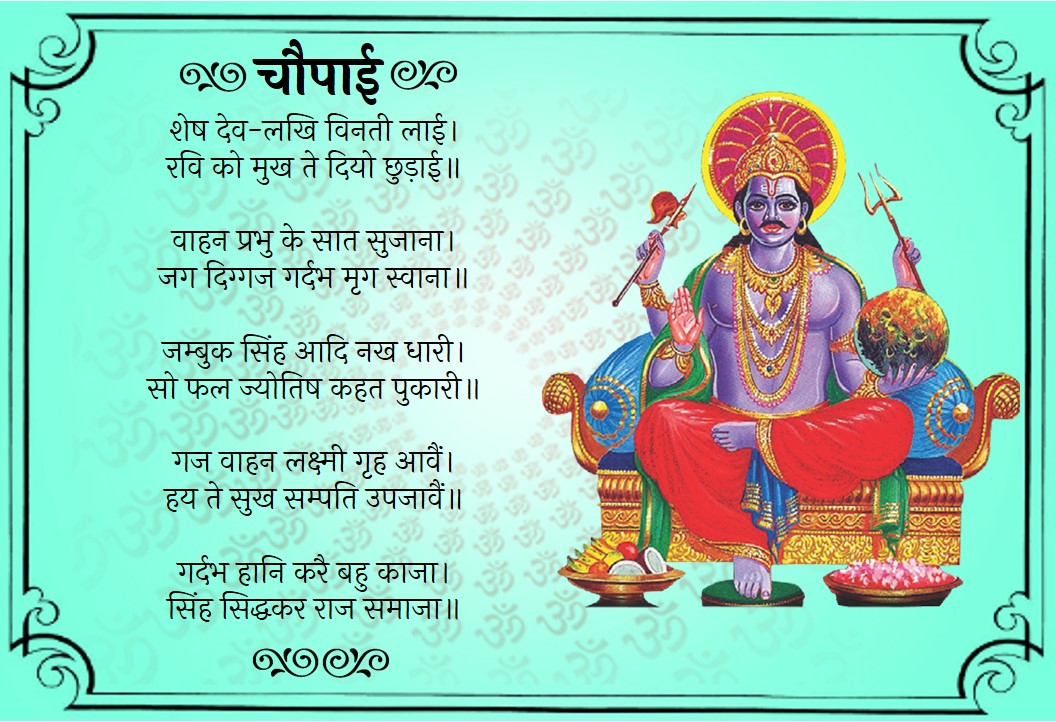 चौपाई
शेष देव-लखि विनती लाई।
रवि को मुख ते दियो छुड़ाई॥
वाहन प्रभु के सात सुजाना।
जग दिग्गज गर्दभ मृग स्वाना॥
जम्बुक सिंह आदि नख धारी।
सो फल ज्योतिष कहत पुकारी॥
गज वाहन लक्ष्मी गृह आवैं।
हय ते सुख सम्पति उपजावैं॥
गर्दभ हानि करै बहु काजा।
सिंह सिद्धकर राज समाजा॥